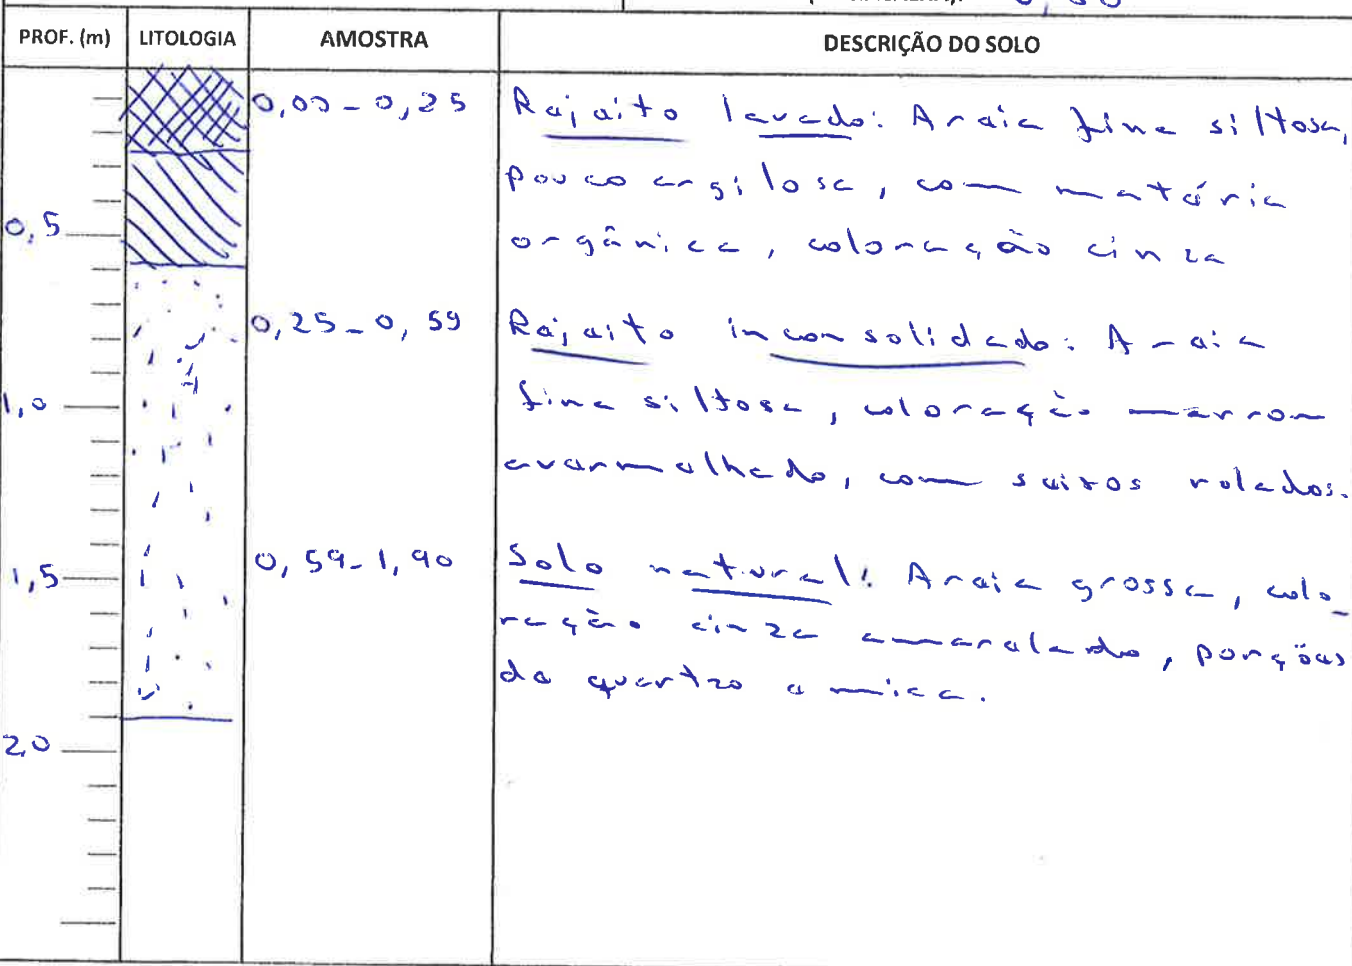 PROF. (m) LITOLOGIA AMOSTRA DESCRIÇÃO DO SOLO
0,00-0,25 Rejeito lavado: Areia fina siltosa,
pouco argilosa, com matéria
0,5 orgânica, coloração cinza
0,25-0,59 Rejeito inconsolidado: Areia
1,0 fina siltosa, coloração marrom
avermelhado, com seixos rolados.
1,5 0,59-1,90 Solo natural: Areia grossa, colo-
ração cinza amarelado, porções
de quartzo e mica.
2,0